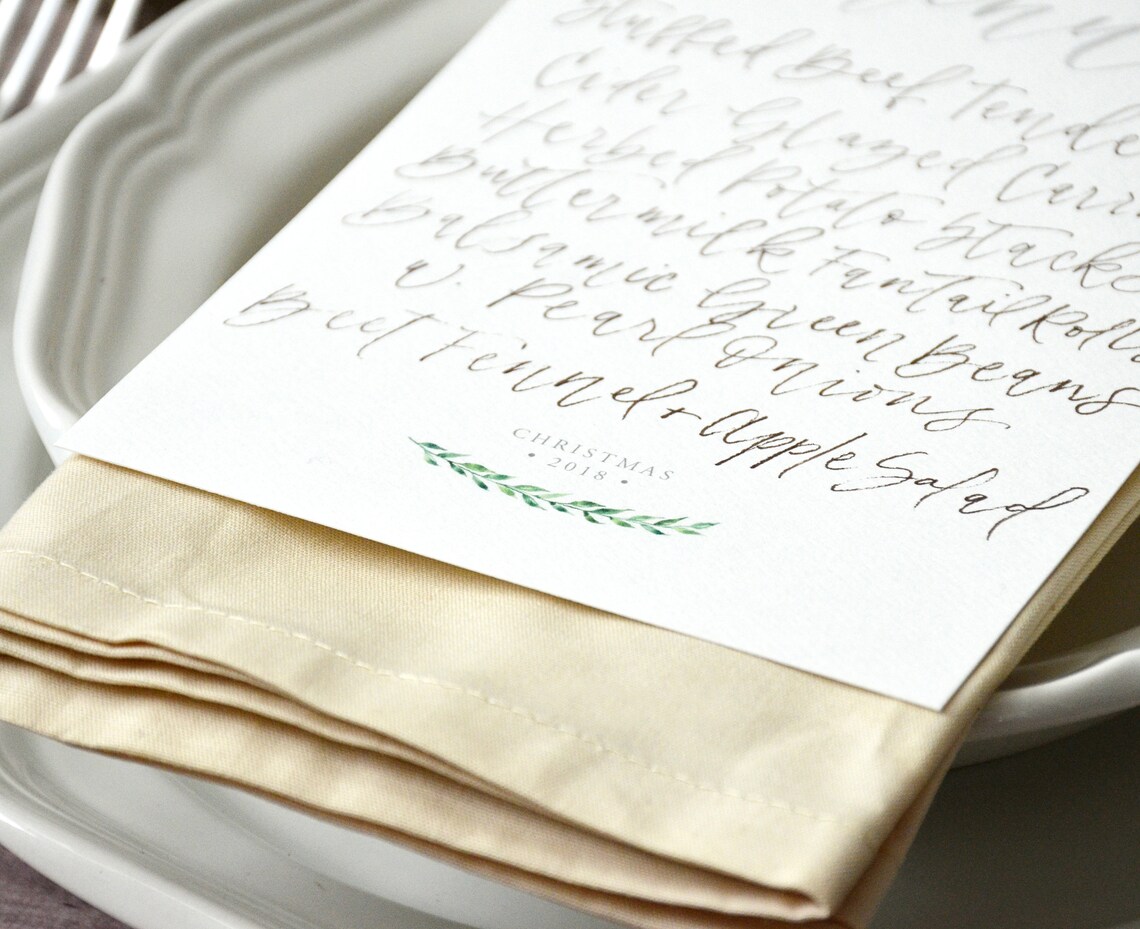 Stuffed Beef Tende
Cider Glazed Carr
Herbed Potato Stacke
Buttermilk Fantail Roll
Balsamic Green Beans
w. Pearl Onions
Beet Fennel + Apple Salad
CHRISTMAS
• 2018 •